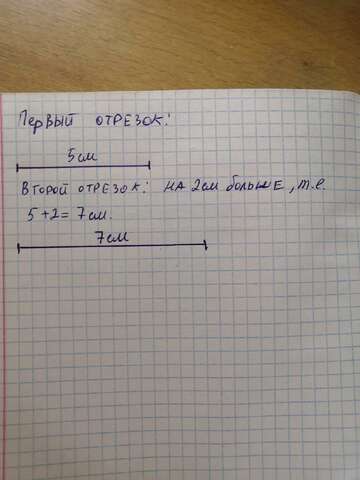 Первый отрезок:
5 см
Второй отрезок: на 2 см больше, т.е.
5 + 2 = 7 см.
7 см